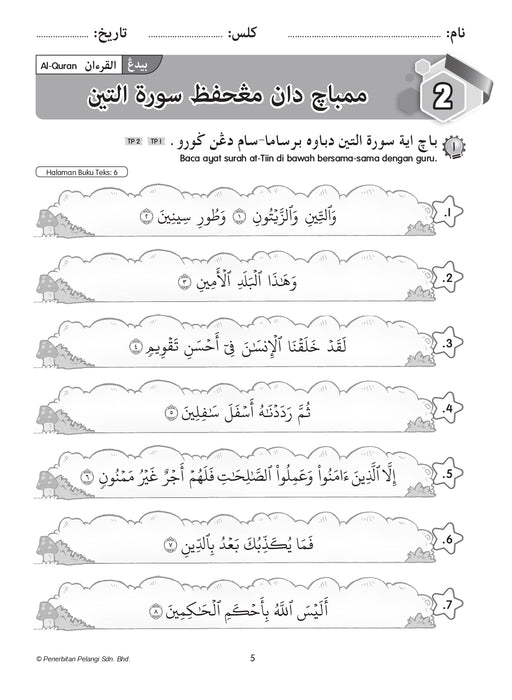 نام: ........................ کلس: ........................ تاريخ: ........................
بيدڠ القرءان Al-Quran
2 ممباچ دان مڠحفظ سورة التين
١ باچ اية سورة التين دباوه برساما-سام دڠن ݢورو . TP 1 TP 2
Baca ayat surah at-Tiin di bawah bersama-sama dengan guru.
Halaman Buku Teks: 6
.1 وَٱلتِّينِ وَٱلزَّيْتُونِ ١ وَطُورِ سِينِينَ ٢
.2 وَهَٰذَا ٱلْبَلَدِ ٱلْأَمِينِ ٣
.3 لَقَدْ خَلَقْنَا ٱلْإِنسَٰنَ فِىٓ أَحْسَنِ تَقْوِيمٍ ٤
.4 ثُمَّ رَدَدْنَٰهُ أَسْفَلَ سَٰفِلِينَ ٥
.5 إِلَّا ٱلَّذِينَ ءَامَنُوا۟ وَعَمِلُوا۟ ٱلصَّٰلِحَٰتِ فَلَهُمْ أَجْرٌ غَيْرُ مَمْنُونٍ ٦
.6 فَمَا يُكَذِّبُكَ بَعْدُ بِٱلدِّينِ ٧
.7 أَلَيْسَ ٱللَّهُ بِأَحْكَمِ ٱلْحَٰكِمِينَ ٨
© Penerbitan Pelangi Sdn. Bhd.
5